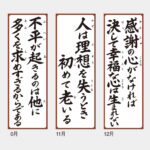 感謝の心がなければ
決して幸福な心は生れない
人は理想を失うとき
初めて老いる
不平が起きるのは他に
多くを求めすぎるからである
0月
11月
12月